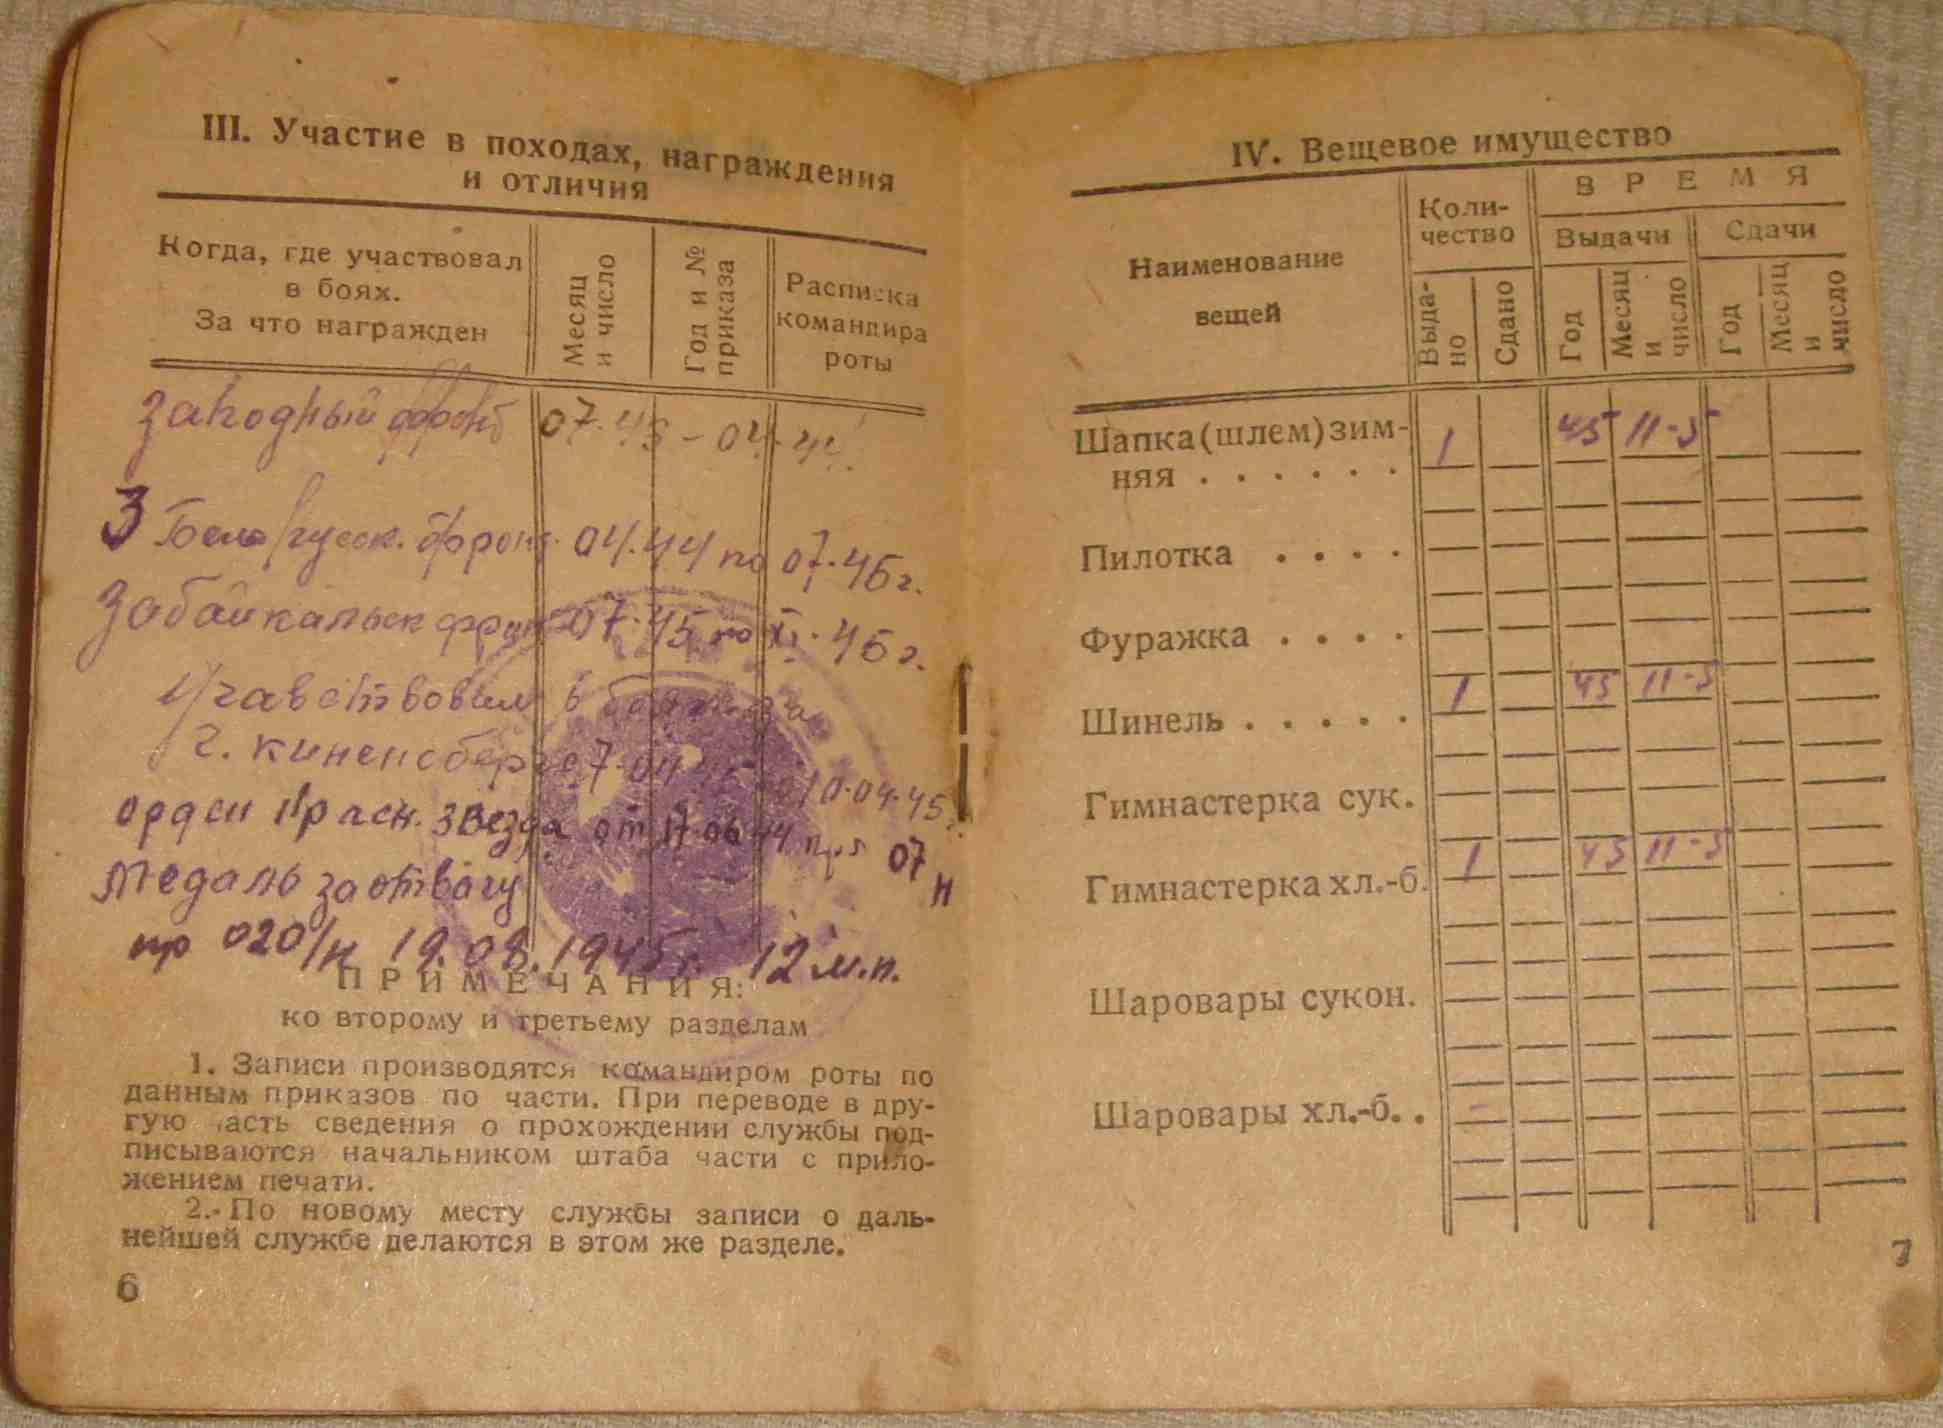 III. Участие в походах, награждения
и отличия
Когда, где участвовал
в боях.
За что награжден
Месяц
и число
Год и №
приказа
Расписка
командира
роты
Западный фронт 07.43 - 04.44.
3 Белорусск. фронт 04.44 по 07.45г.
Забайкальск фронт 07.45 по XI.45г.
Учавствовал в боях за
г. Киненсберг с 7.04.45 по 10.04.45г.
орден Красн. звезда от 17.06.44 пр. 07
н
Медаль за отвагу
пр 020/н 19.08.1945г. 12 м.п.
ПРИМЕЧАНИЯ:
ко второму и третьему разделам
1. Записи производятся командиром роты по
данным приказов по части. При переводе в дру-
гую часть сведения о прохождении службы под-
писываются начальником штаба части с прило-
жением печати.
2. По новому месту службы записи о даль-
нейшей службе делаются в этом же разделе.
6
IV. Вещевое имущество
Наименование
вещей
Коли-
чество
ВРЕМЯ
Выдачи
Сдачи
Выда-
но
Сдано
Год
Месяц
и
число
Год
Месяц
и
число
Шапка (шлем) зим- 1 45 11-5
няя . . . . . .
Пилотка . . . .
Фуражка . . . .
Шинель . . . . . 1 45 11-5
Гимнастерка сук.
Гимнастерка хл.-б. 1 45 11-5
Шаровары сукон.
Шаровары хл.-б. .
7